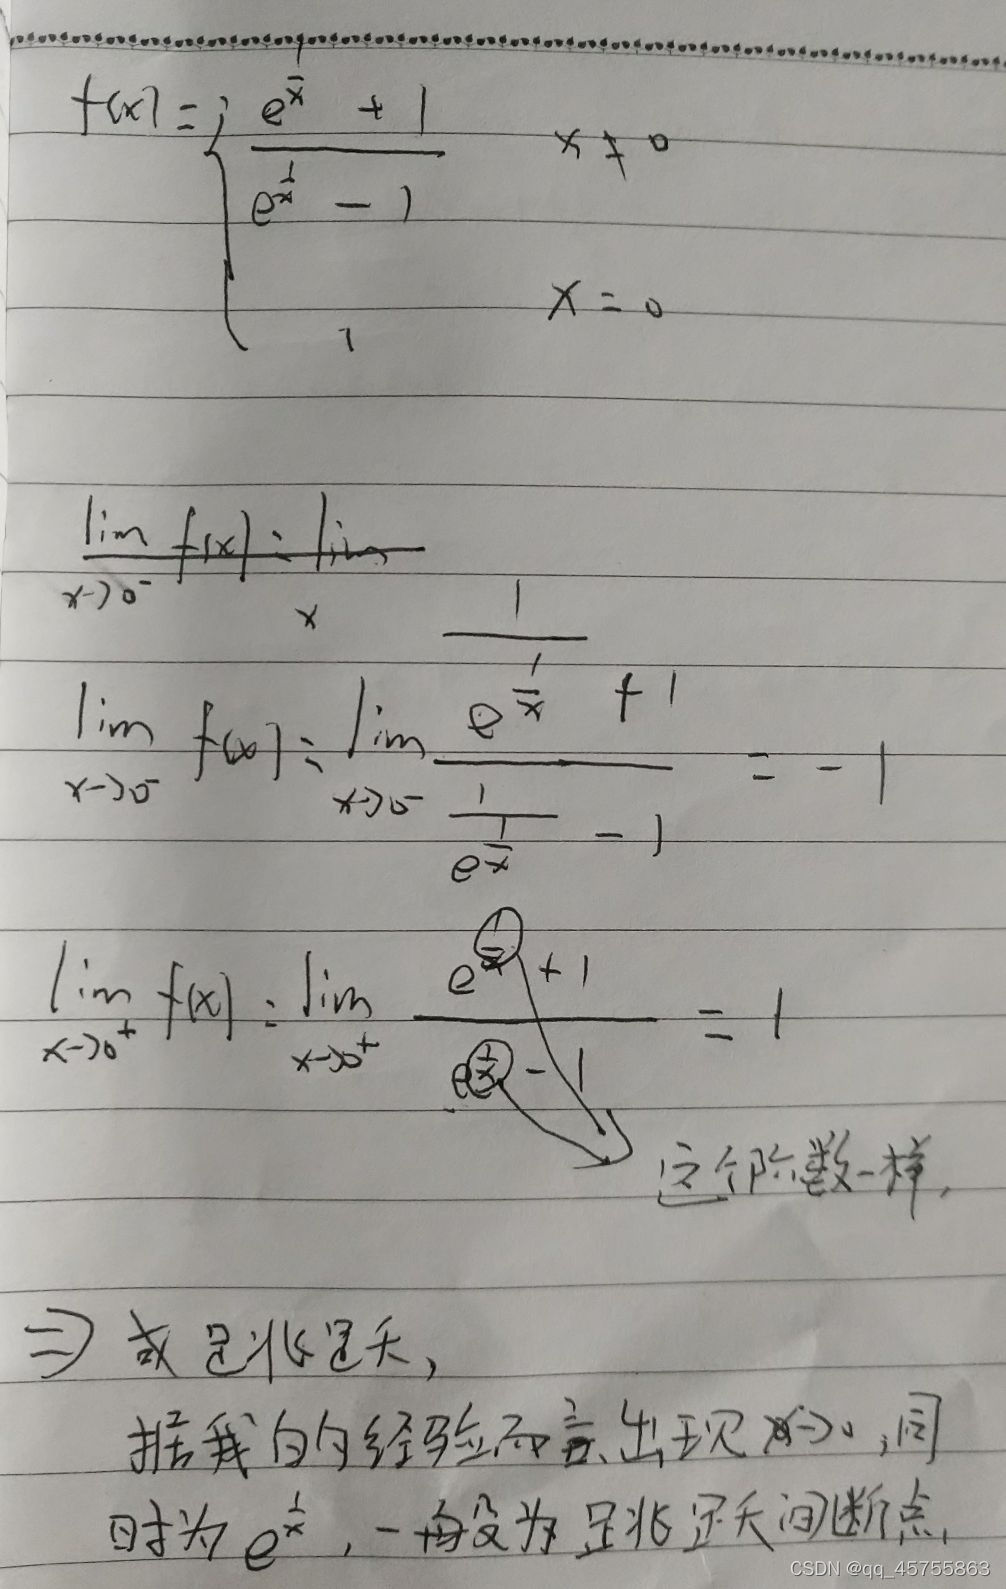 f(x) = { e^{1/x} + 1 / e^{1/x} - 1    x ≠ 0
1    x = 0
lim x→0⁻ f(x) = lim x
lim x→0⁻ f(x) = lim x→0⁻ (1 / e^{1/x} + 1) / (1 / e^{1/x} - 1) = -1
lim x→0⁺ f(x) = lim x→0⁺ (e^{1/x} + 1) / (e^{1/x} - 1) = 1
这个阶数一样,
⇒ 故是跳跃,
据我的经验而言,出现 x→0,同
时为 e^{1/x},一般为跳跃间断点
CSDN @qq_45755863